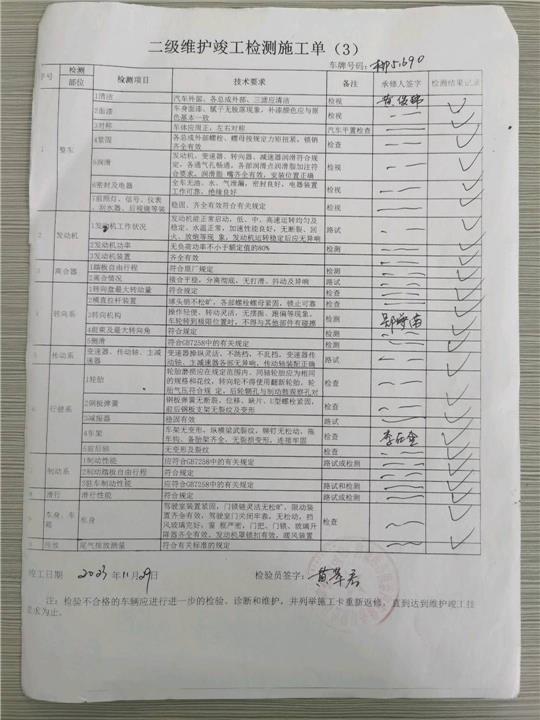 二级维护竣工检测施工单（3）
车牌号码：
序号 检测部位 检测项目 技术要求 备注 承修人签字 检测结果记录
1 整车 1清洁 汽车外部、各总成外部、三滤应清洁 检视
2面漆 车身面漆、腻子无脱落现象，补漆颜色应与原色基本一致 检视
3对称 车体应周正，左右对称 汽车平置检查
4紧固 各总成外部螺栓、螺母按规定力矩扭紧，锁销齐全有效 检查
5润滑 发动机、变速器、转向器、减速器润滑符合规定，各通气孔畅通，各部润滑点润滑脂加注符合要求，润滑脂 嘴齐全有效，安装位置正确 检视
6密封及电器 全车无油、水、气泄漏，密封良好，电器装置工作可靠，绝缘良好 检视
7前照灯、信号、仪表、刮水器、后视镜等装 稳固、齐全有效符合有关规定 检视
2 发动机 1发动机工作状况 发动机能正常启动，低、中、高速运转均匀及稳定、水温正常，加速性能良好，无断裂、回火、放炮等现象，发动机运转稳定后应无异响 路试
2发动机功率 无负荷功率不小于额定值的80% 检测
3发动机装置 齐全有效 检查
3 离合器 1踏板自由行程 符合原厂规定 检测
2离合情况 接合平稳，分离彻底、无打滑、抖动及异响 路试
4 转向系 1转向盘最大转动量 符合规定 检查
2横直拉杆装置 球头销不松旷，各部螺栓螺母紧固，锁止可靠 检查
3转向机构 操作轻便、转动灵活，无摆振、跑偏等现象，车轮转到极限位置时，不得与其他部件有碰擦 检测
4前束及最大转向角 符合规定 检测
5侧滑 符合GB7258中的有关规定 检测
5 传动系 变速器、传动轴、主减速器 变速器操纵灵活、不跳挡、不乱挡，变速器传动轴、主减速器各部无异响，传动轴装配正确 路试
6 行驶系 1轮胎 轮胎磨损应在规定范围内，同轴轮胎应为相同的规格和花纹，转向轮不得使用翻新轮胎，轮胎气压符合规 定，后轮辋孔与制动鼓观察孔对 检查
2钢板弹簧 钢板弹簧无断裂、位移、缺片、U型螺栓紧固，前后钢板支架无裂纹及变形 检查
3减振器 稳固有效 路试
4车架 车架无变形，纵横梁无裂纹，铆钉无松动，拖车钩、备胎架齐全、无裂损变形，连接牢固 检查
5前后轴 无变形及裂纹 检查
7 制动系 1制动性能 应符合GB7258中的有关规定 路试或检测
2制动踏板自由行程 符合规定 检测
3驻车制动性能 应符合GB7258中的有关规定 路试和检测
8 滑行 滑行性能 符合规定 路试或检测
9 车身、车厢 车身 驾驶室装置紧固，门锁链灵活无松旷，限动装置齐全有效，驾驶室门关闭牢靠，无松动，挡风玻璃完好，窗 框严密，门把、门锁、玻璃升降器齐全有效，发动机罩锁扣有效，暖风装置 检查
尾气排放测量 符合有关标准的规定 检测
竣工日期 2023年11月29日 检验员签字：
注：检验不合格的车辆应进行进一步的检验、诊断和维护，并列举施工卡重新返修，直到达到维护竣工技
要求为止。